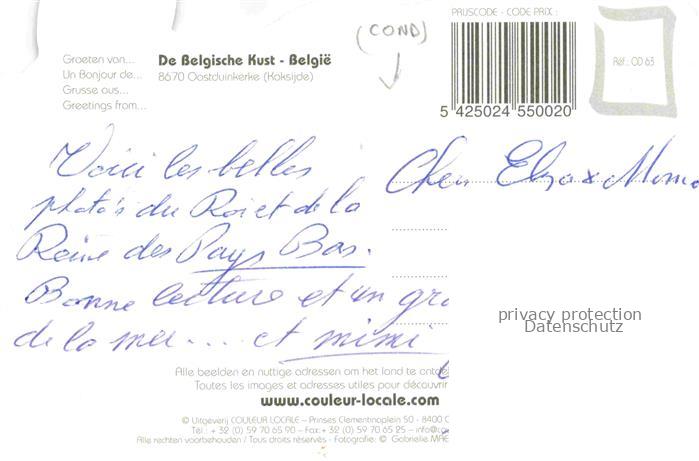 (COND)
PRIJSCODE - CODE PRIX :
Groeten van... De Belgische Kust - België
Un Bonjour de... 8670 Oostduinkerke (Koksijde)
Grusse aus...
Greetings from...
Réf.: CO 63
5 425024 550020
Voici les belles
photo's du Roi et de la
Reine des Pays Bas.
Bonne lecture et un gro
de la mer.... et mimi
Cher
privacy protection
Datenschutz
Alle beelden en nuttige adressen om het land te ontde
Toutes les images et adresses utiles pour découvrir
www.couleur-locale.com
© Uitgeverij COULEUR LOCALE – Prinses Clementinaplein 50 - 8400 O
Tél.: + 32 (0) 59 70 65 90 – Fax:+ 32 (0) 59 70 65 25 – info@co
Alle rechten voorbehouden / Tous droits réservés - Fotografie: © Gabrielle MAE